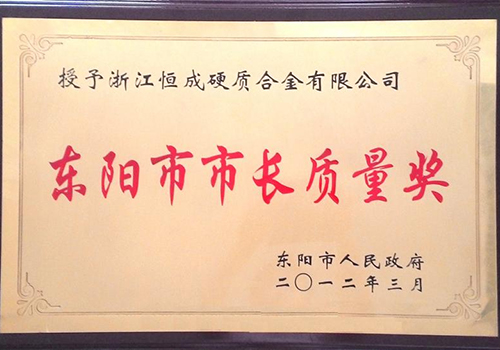 授予浙江恒成硬质合金有限公司
东阳市市长质量奖
东阳市人民政府
二〇一二年三月